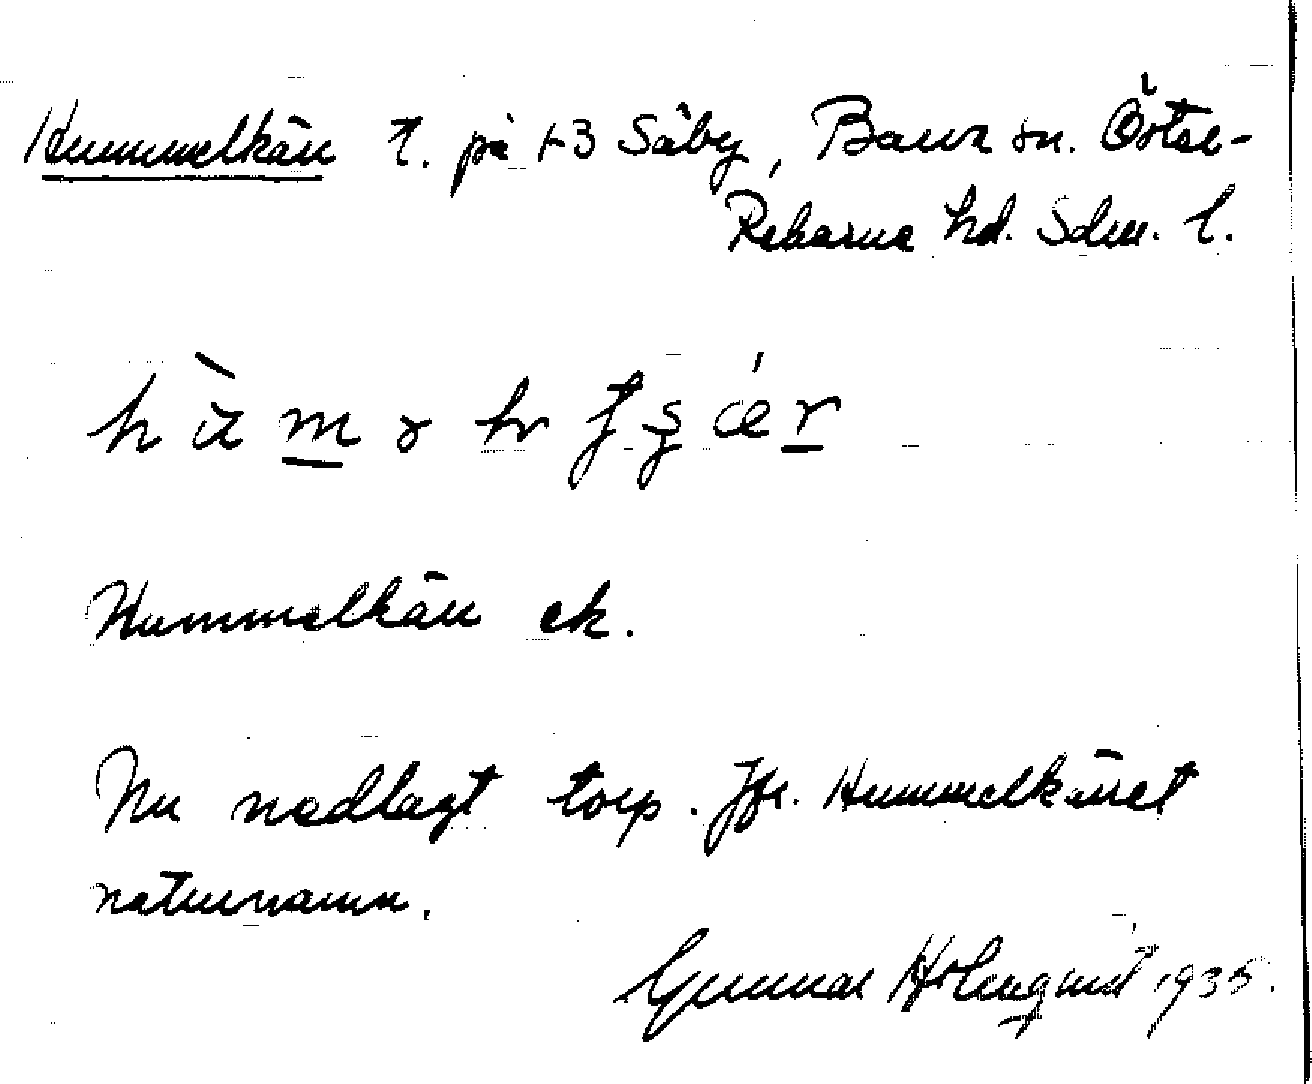 Hummelkärr t. på 1-3 Säby, Barva sn. Öster-
Rekarne hd. Sdm. l.
Hummelkärr ek.
Nu nedlagt torp. Jfr. Hummelkärret
naturnamn.
Gunnar Holmqvist 1935.